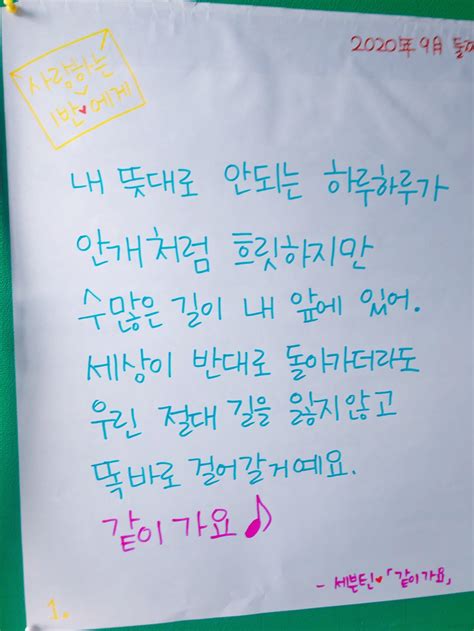 2020年 9月 둘째
사랑하는
1반♥에게
내 뜻대로 안되는 하루하루가
안개처럼 흐릿하지만
수많은 길이 내 앞에 있어.
세상이 반대로 돌아가더라도
우린 절대 길을 잃지않고
똑바로 걸어갈거예요.
같이 가요♪
- 세븐틴♥「같이가요」
1.